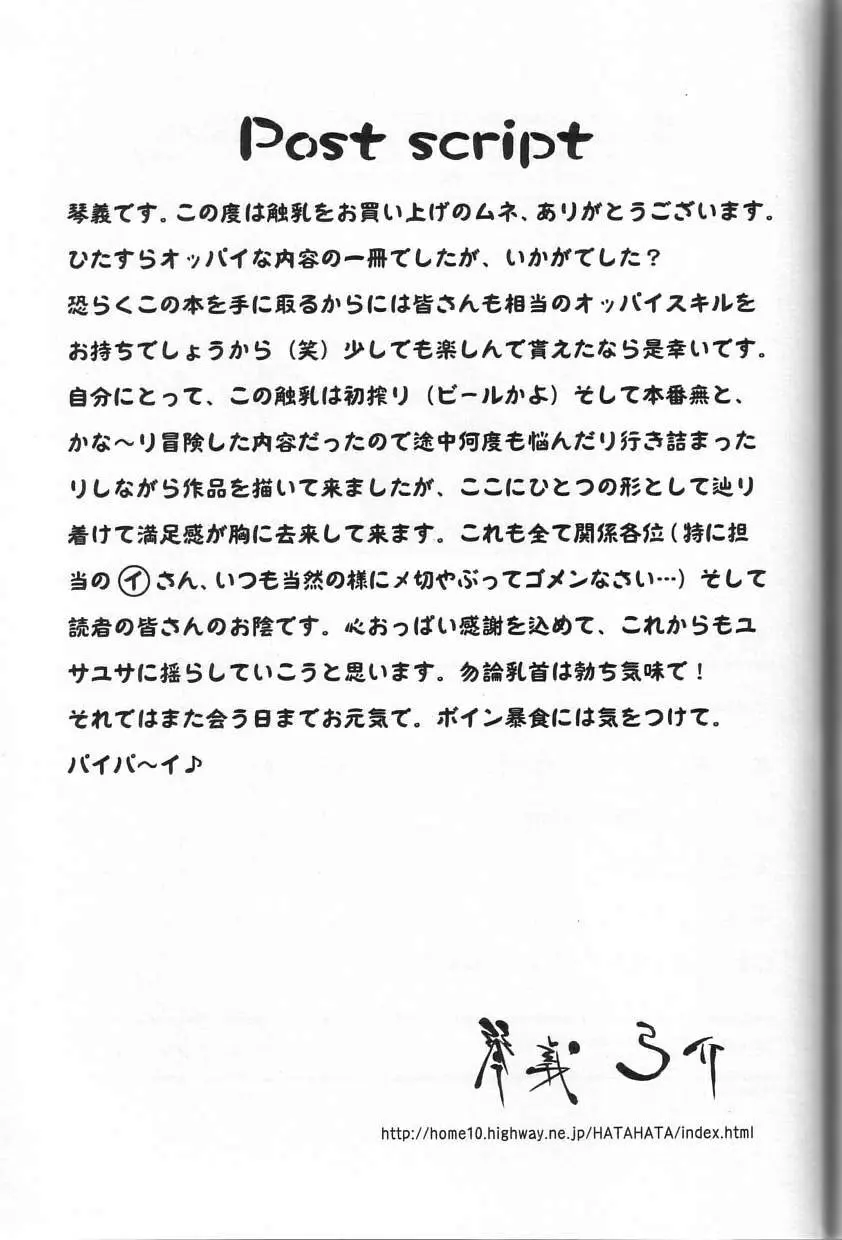 Post script
琴義です。この度は触乳をお買い上げのムネ、ありがとうございます。
ひたすらオッパイな内容の一冊でしたが、いかがでした？
恐らくこの本を手に取るからには皆さんも相当のオッパイスキルを
お持ちでしょうから（笑）少しでも楽しんで貰えたなら是幸いです。
自分にとって、この触乳は初搾り（ビールかよ）そして本番無と、
かな〜り冒険した内容だったので途中何度も悩んだり行き詰まった
りしながら作品を描いて来ましたが、ここにひとつの形として辿り
着けて満足感が胸に去来して来ます。これも全て関係各位（特に担
当の㋑さん、いつも当然の様に〆切やぶってゴメンなさい…）そして
読者の皆さんのお陰です。心おっぱい感謝を込めて、これからもユ
サユサに揺らしていこうと思います。勿論乳首は勃ち気味で！
それではまた会う日までお元気で。ボイン暴食には気をつけて。
パイパ〜イ♪
琴義弓介
http://home10.highway.ne.jp/HATAHATA/index.html